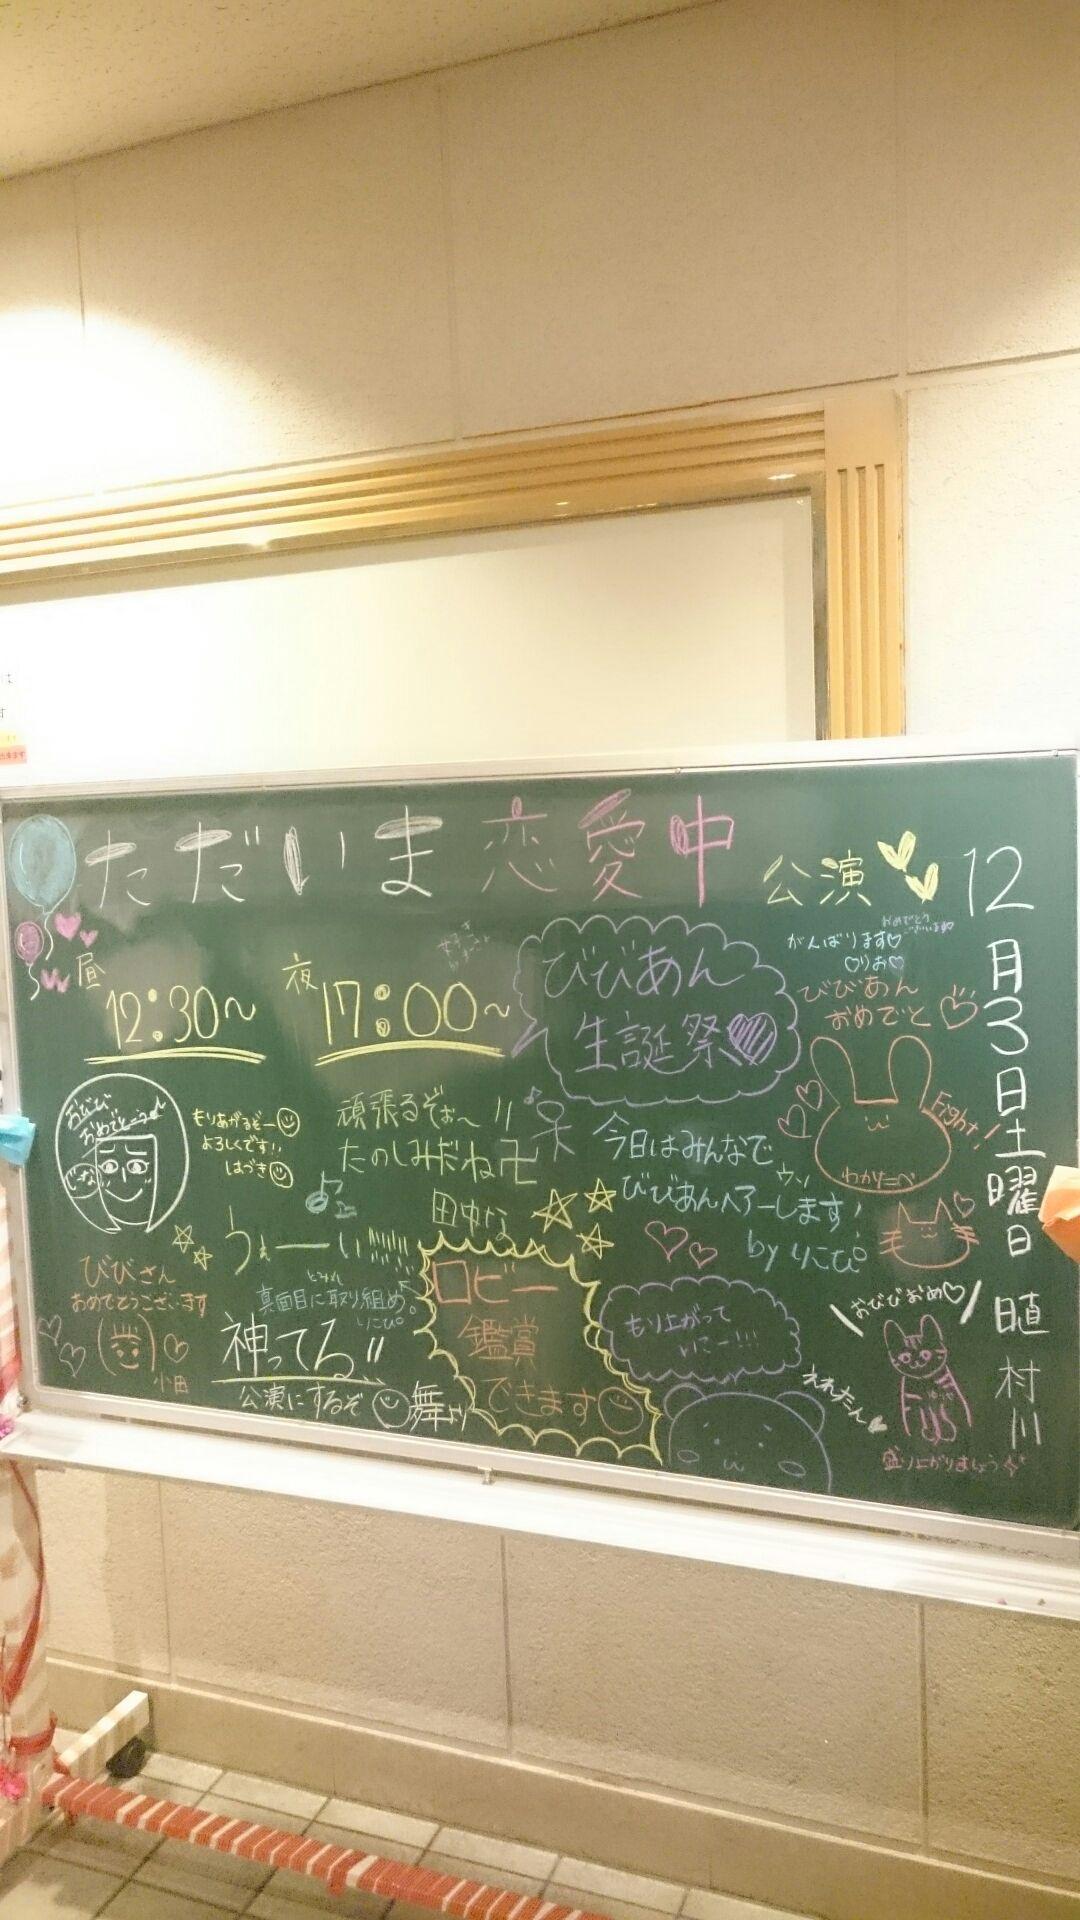 ただいま恋愛中
公演
12月3日土曜日
植村川
昼
12:30～
夜
17:00～
びびあん
生誕祭
おめでとう
ございます
がんばります♡
♡りお♡
びびあん
おめでと
Fight!
わかたべ
おびび
おめでとーっ♪
じーな
もりあがるぞー
よろしくです!!
はづき
頑張るぞぉ〜!!
たのしみだね卍
田中な
今日はみんなで
びびあんヘアーします!
ウソ
by りこぴ。
うぇーい
びびさん
おめでとうございます
小田
真面目に取り組め。
りこぴ。
神ってる!!
公演にするぞ
舞より
ロビー
鑑賞
できます
もり上がって
いこー!!!
おびびおめ♡
盛り上がりましょう